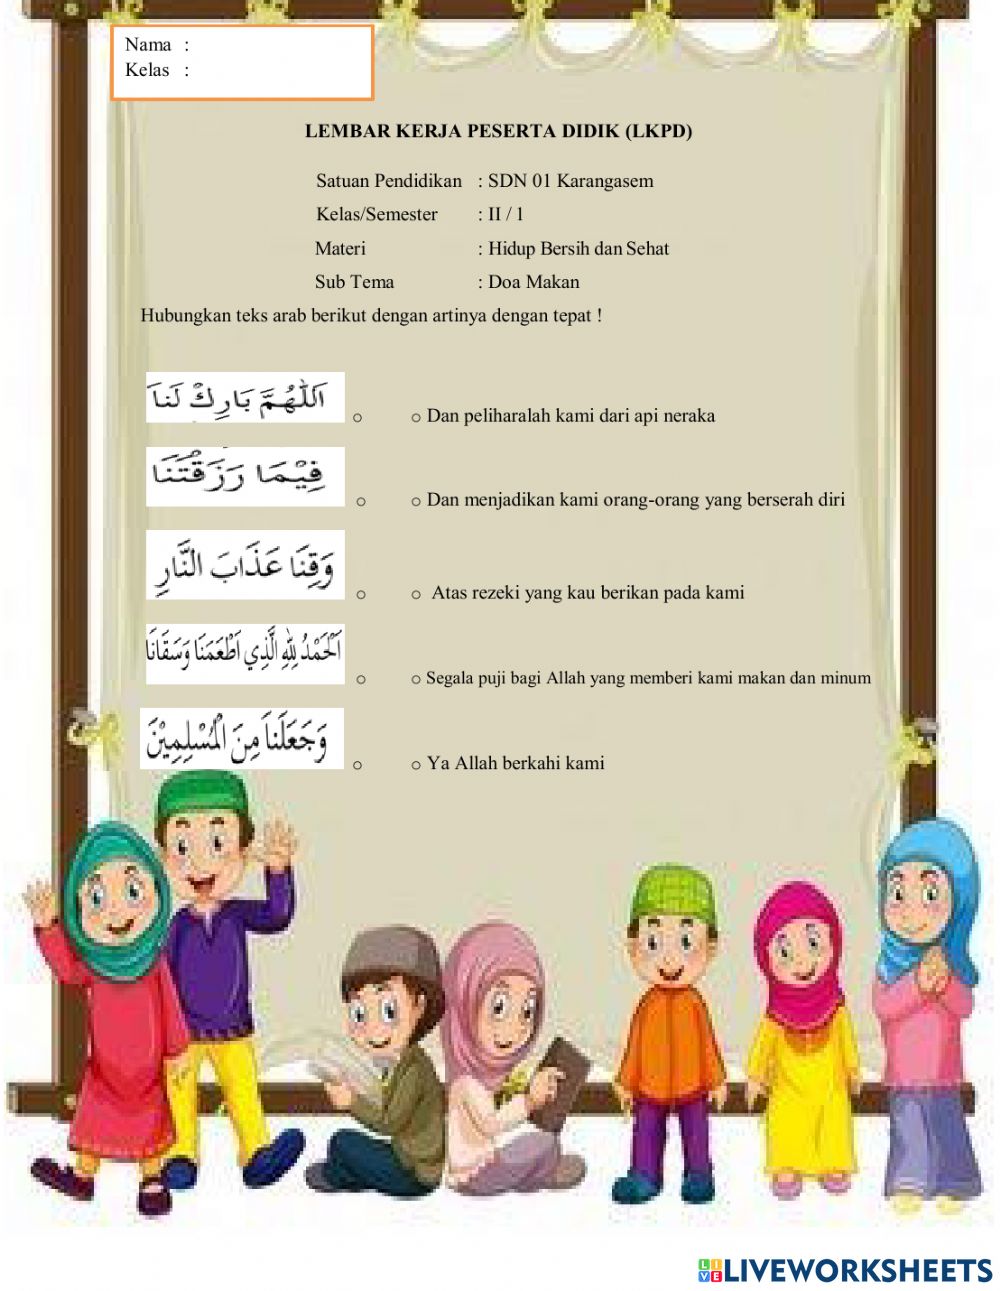 Nama :
Kelas :
LEMBAR KERJA PESERTA DIDIK (LKPD)
Satuan Pendidikan : SDN 01 Karangasem
Kelas/Semester : II / 1
Materi : Hidup Bersih dan Sehat
Sub Tema : Doa Makan
Hubungkan teks arab berikut dengan artinya dengan tepat !
اَللّٰهُمَّ بَارِكْ لَنَا o o Dan peliharalah kami dari api neraka
فِيْمَا رَزَقْتَنَا o o Dan menjadikan kami orang-orang yang berserah diri
وَقِنَا عَذَابَ النَّارِ o o Atas rezeki yang kau berikan pada kami
اَلْحَمْدُ لِلّٰهِ الَّذِي اَطْعَمَنَا وَسَقَانَا o o Segala puji bagi Allah yang memberi kami makan dan minum
وَجَعَلَنَا مِنَ الْمُسْلِمِيْنَ o o Ya Allah berkahi kami
LIVE LIVEWORKSHEETS